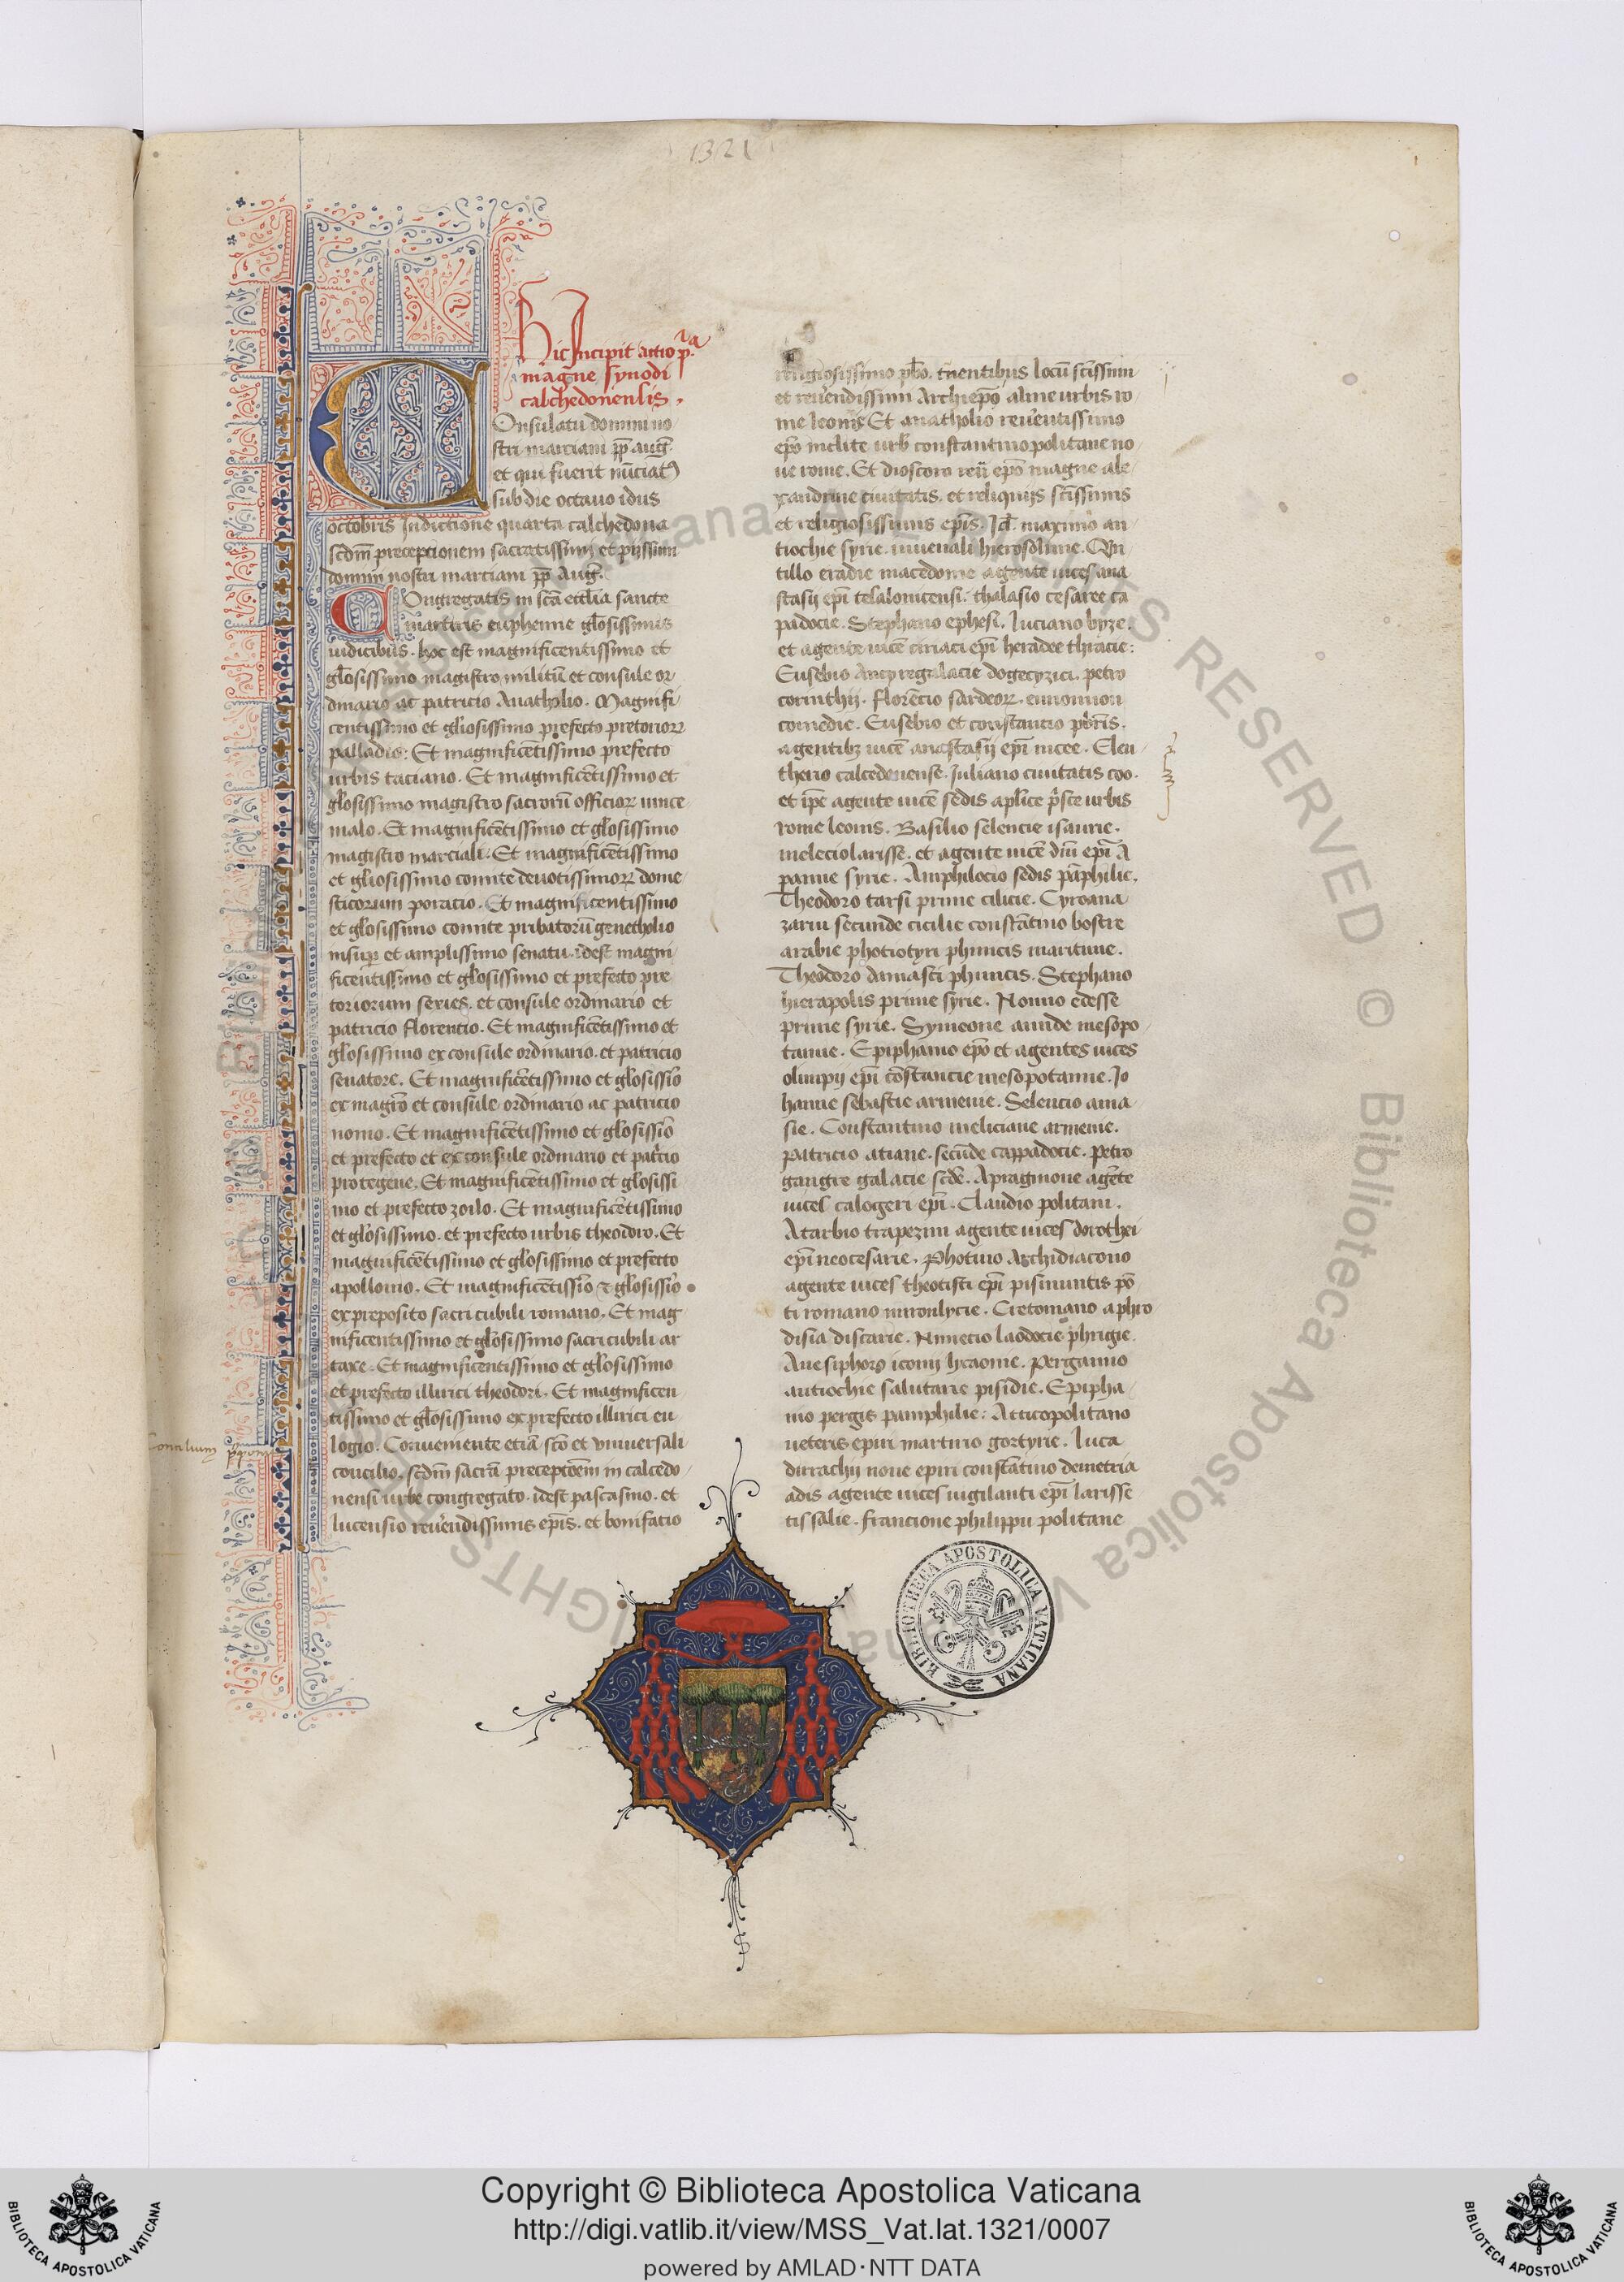 1321
1
Hic Incipit actio p.ª
magne synodi
calchedonensis.
COnsulatu domini no
stri marciani pp̄ auḡ.
et qui fuerit nūciatꝰ
sub die octavo idus
octobris Indictione quarta calchedona
scd̄m preceptionem sacratissimi et pijssimi
domini nostri marciani pp̄ Auḡ.
COngregatis in scā eccl̄ia sancte
martiris euphemie gl̄osissimis
iudicibus. hoc est magnificentissimo et
gl̄osissimo magistro militū et consule or
dinario ac patricio Anatholio. Magnifi
centissimo et gl̄iosissimo prefecto pretorioꝝ
palladis. Et magnificētissimo prefecto
urbis taciano. Et magnificētissimo et
gl̄osissimo magistro sacrorū officioꝝ vince
malo. Et magnificētissimo et gl̄osissimo
magistro marciali. Et magnificētissimo
et gl̄iosissimo comite devotissimoꝝ dome
sticorum poracio. Et magnificentissimo
et gl̄osissimo comite privatorū genetholio
insuꝑ et amplissimo senatu. idest magni
ficentissimo et gl̄osissimo et prefecto pre
toriorum series. et consule ordinario et
patricio florencio. Et magnificētissimo et
gl̄osissimo ex consule ordinario. et patricio
senatore. Et magnificētissimo et gl̄osissīo
ex magr̄o et consule ordinario ac patricio
nomo. Et magnificētissimo et gl̄osissīo
et prefecto et ex consule ordinario et patr̄io
protegene. Et magnificētissimo et glosissi
mo et prefecto zoilo. Et magnificētissimo
et gl̄osissimo. et prefecto urbis theodoro. Et
magnificētissimo et gl̄osissimo et prefecto
apollonio. Et magnificētissīo ⁊ gl̄osissīo
ex preposito sacri cubili romano. Et mag
nificentissimo et gl̄osissimo sacri cubili ar
taxe. Et magnificentissimo et gl̄osissimo
et prefecto illirici theodori. Et magnificen
tissimo et gl̄osissimo ex prefecto illirici eu
logio. Conveniente etiā sc̄o et universali
concilio. scd̄m sacrā preceptōem in calcedo
nensi urbe congregato. idest pascasino. et
lucensio rev̄endissimis ep̄is. et bonifatio
Concilium
religiosissimo pb̄ro. tnentibus locū sc̄issimi
et rev̄endissimi Archiep̄o alme urbis ro
me leonis Et anatholio rev̄entissimo
ep̄o inclite urb̄ constantinopolitane no
ve rome. Et dioscoro reū ep̄o magne ale
xandrine civitatis. et reliquijs sc̄issimis
et religiosissimis ep̄is. Id̄. maximo an
tiochie syrie. iuvenali hierosolime. Qui
tillo eradie macedonie agente vices ana
stasij ep̄i tesalonicensi. thalasio cesaree ca
padocie. Stephano ephesi. luciano byze.
et agente vicē ciriaci ep̄i heradee thracie:
Eusebio Ancyre galacie dogecyzici. petro
corinthij. florēcio sardeoꝝ. eunomion
comedie. Eusebio et constantio pb̄ris.
agentibꝫ vicē anastasij ep̄i nicee. Eleu
therio calcedenense. Iuliano civitatis coo.
et ip̄e agente vicē sedis aplice p̄ste urbis
rome leonis. Basilio selencie isaurie.
meleciolarisse. et agente vicē diū ep̄i A
pamie syrie. Amphilocio sedis pāphilie.
Theodoro tarsi prime cilicie. Cyroana
zarm secunde cicilie constātino bostre
arabie photiotyri phinicis maritime.
Theodoro damasci phinicis. Stephano
hierapolis prime syrie. Nonno edesse
prime syrie. Symeone amide mesopo
tamie. Epiphanio ep̄o et agentes vices
olimpij ep̄i cōstancie mesopotamie. Io
hanne sebastie armenie. Selencio ama
sie. Constantino meliciane armenie.
patricio atiane. secūde cappadocie. petro
gangre galacie scd̄e. Apragmone agēte
vices calogeri ep̄i. Claudio politani.
Atarbio trapezim agente vices dorothei
ep̄i neocesarie. Photino Archidiacono
agente vices theotisti ep̄i pisinuntis pō
ti romano mironlycie. Cretomano aphro
disia discarie. Nunecio laodocie phrigie.
Anesiphoro iconij lycaonie. Pergamio
antiochie salutarie pisidie. Epipha
nio pergis pamphilie: Atticopolitano
veteris epiri martirio gortyne. luca
dirrachij nove epiri constātino demetria
adis agente vices vigilanti ep̄i larisse
tissalie. francione philippu politane
BIBLIOTHECA APOSTOLICA VATICANA
ALL RIGHTS RESERVED © Biblioteca Apostolica Vaticana
Copyright © Biblioteca Apostolica Vaticana
http://digi.vatlib.it/view/MSS_Vat.lat.1321/0007
powered by AMLAD·NTT DATA
BIBLIOTECA APOSTOLICA VATICANA
BIBLIOTECA APOSTOLICA VATICANA